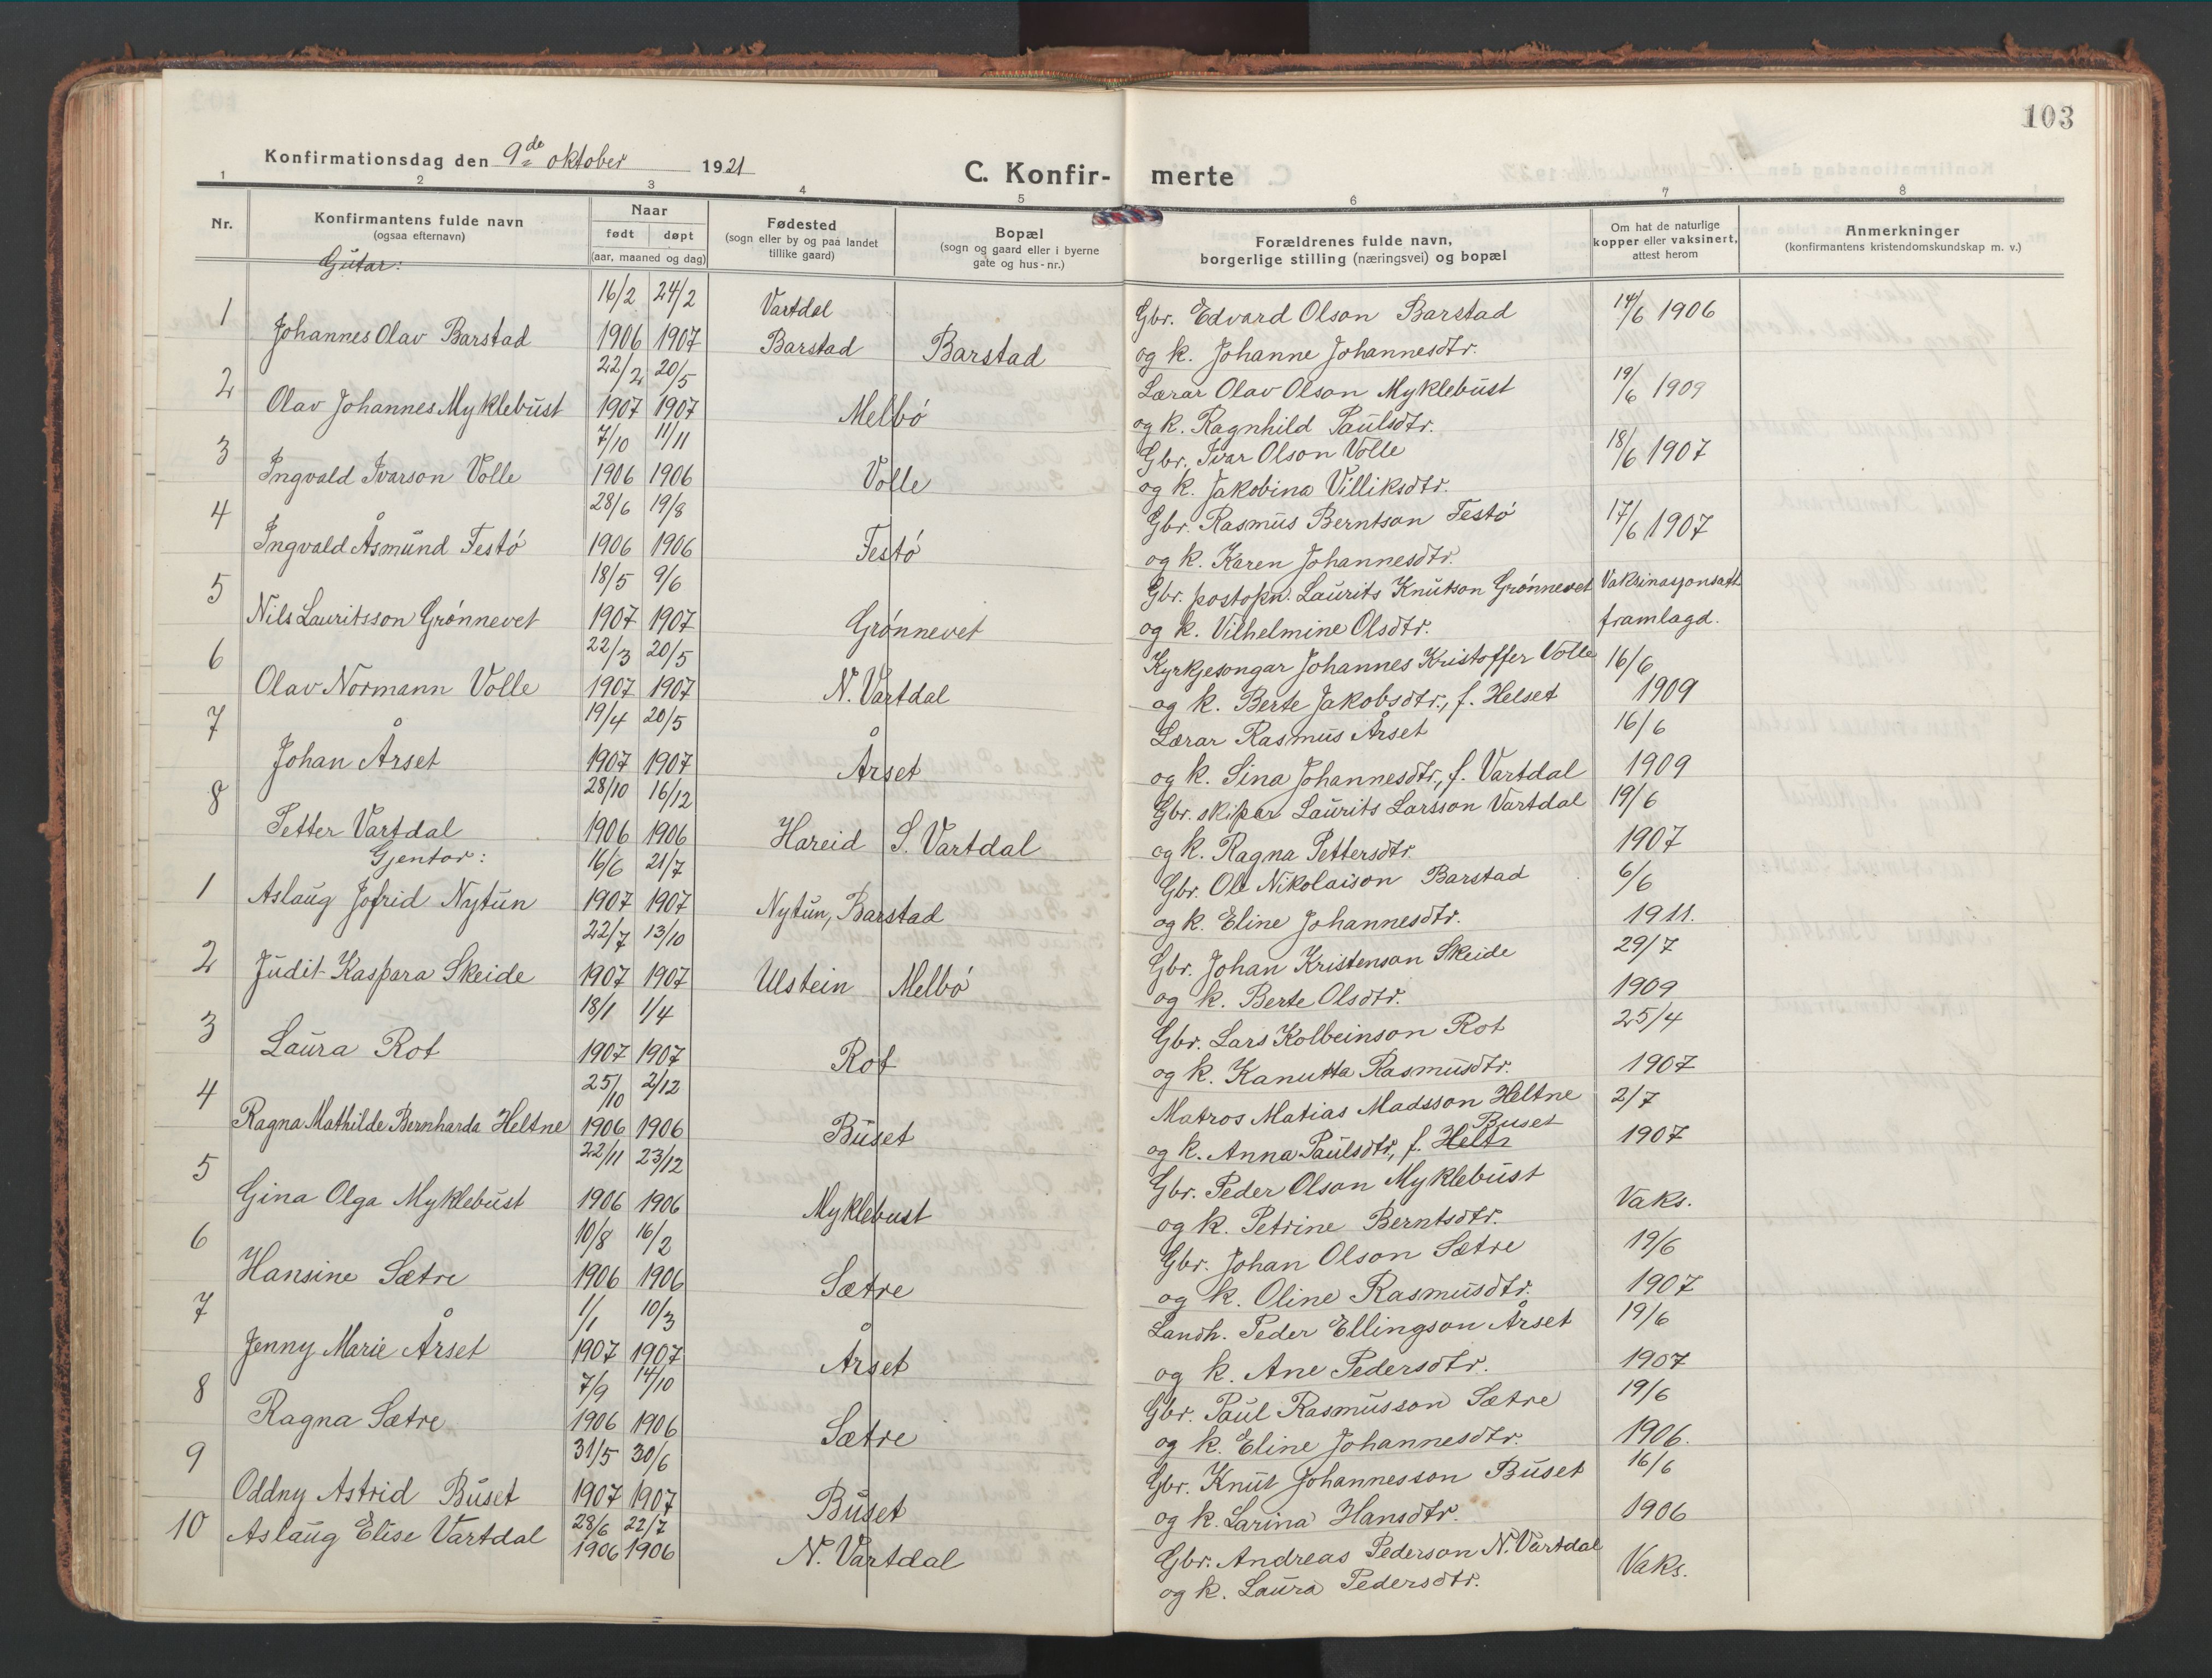 103
Konfirmationsdag den 9de oktober 1921
C. Konfirmerte
1 2 3 4 5 6 7 8
Nr.
Konfirmantens fulde navn
(ogsaa efternavn)
Naar
født døpt
(aar, maaned og dag)
Fødested
(sogn eller by og paa landet
tillike gaard)
Bopæl
(sogn og gaard eller i byerne
gate og hus-nr.)
Forældrenes fulde navn,
borgerlige stilling (næringsvei) og bopæl
Om hat de naturlige
kopper eller vaksinert,
attest herom
Anmerkninger
(konfirmantens kristendomskundskap m. v.)
Gutar:
1 16/2 24/2 Vartdal Gbr. Edvard Olson Barstad 14/6 1906
Johannes Olav Barstad 1906 1907 Barstad Barstad og k. Johanne Johannesdtr.
2 22/2 20/5 Lærar Olav Olson Myklebust 19/6 1909
Olav Johannes Myklebust 1907 1907 Melbø og k. Ragnhild Paulsdtr.
3 7/10 11/11 Gbr. Ivar Olson Volle 18/6 1907
Ingvald Ivarson Volle 1906 1906 Volle og k. Jakobina Villiksdtr.
4 28/6 19/8 Gbr. Rasmus Berntson Festø 17/6 1907
Ingvald Åsmund Festø 1906 1906 Festø og k. Karen Johannesdtr.
5 18/5 9/6 Gbr. postopn. Laurits Knutson Grønnevet Vaksinasjonsatt
Nils Lauritsson Grønnevet 1907 1907 Grønnevet og k. Vilhelmine Olsdtr. framlagd.
6 22/3 20/5 Kyrkjesongar Johannes Kristoffer Volle 16/6
Olav Normann Volle 1907 1907 N. Vartdal og k. Berte Jakobsdtr., f. Helset 1909
7 19/4 20/5 Lærar Rasmus Årset 16/6
Johan Årset 1907 1907 Årset og k. Sina Johannesdtr., f. Vartdal 1909
8 28/10 16/12 Gbr. skipar Laurits Larsson Vartdal 19/6
Petter Vartdal 1906 1906 Hareid S. Vartdal og k. Ragna Pettersdtr. 1907
Gjentor:
1 16/6 21/7 Gbr. Ole Nikolaison Barstad 6/6
Aslaug Jofrid Nytun 1907 1907 Nytun, Barstad og k. Eline Johannesdtr. 1911.
2 22/7 13/10 Gbr. Johan Kristenson Skeide 29/7
Judit Kaspara Skeide 1907 1907 Ulstein Melbø og k. Berte Olsdtr. 1909
3 18/1 1/4 Gbr. Lars Kolbeinson Rot 25/4
Laura Rot 1907 1907 Rot og k. Kanutta Rasmusdtr. 1907
4 25/10 2/12 Matros Matias Madsson Heltne 2/7
Buset
Ragna Mathilde Bernharda Heltne 1906 1906 Buset og k. Anna Paulsdtr, f. Helt 1907
5 22/11 23/12 Gbr. Peder Olson Myklebust
Gina Olga Myklebust 1906 1906 Myklebust og k. Petrine Berntsdtr. Vaks.
6 10/8 16/2 Gbr. Johan Olson Sætre 19/6
Hansine Sætre 1906 1906 Sætre og k. Oline Rasmusdtr. 1907
7 1/1 10/3 Landh. Peder Ellingson Årset 19/6
Jenny Marie Årset 1907 1907 Årset og k. Ane Pedersdtr. 1907
8 7/9 14/10 Gbr. Paul Rasmusson Sætre 19/6
Ragna Sætre 1906 1906 Sætre og k. Eline Johannesdtr. 1906.
9 31/5 30/6 Gbr. Knut Johannesson Buset 16/6
Oddny Astrid Buset 1907 1907 Buset og k. Larina Hansdtr. 1906
10 28/6 22/7 Gbr. Andreas Pederson N. Vartdal
Aslaug Elise Vartdal 1906 1906 N. Vartdal og k. Laura Pedersdtr. Vaks.